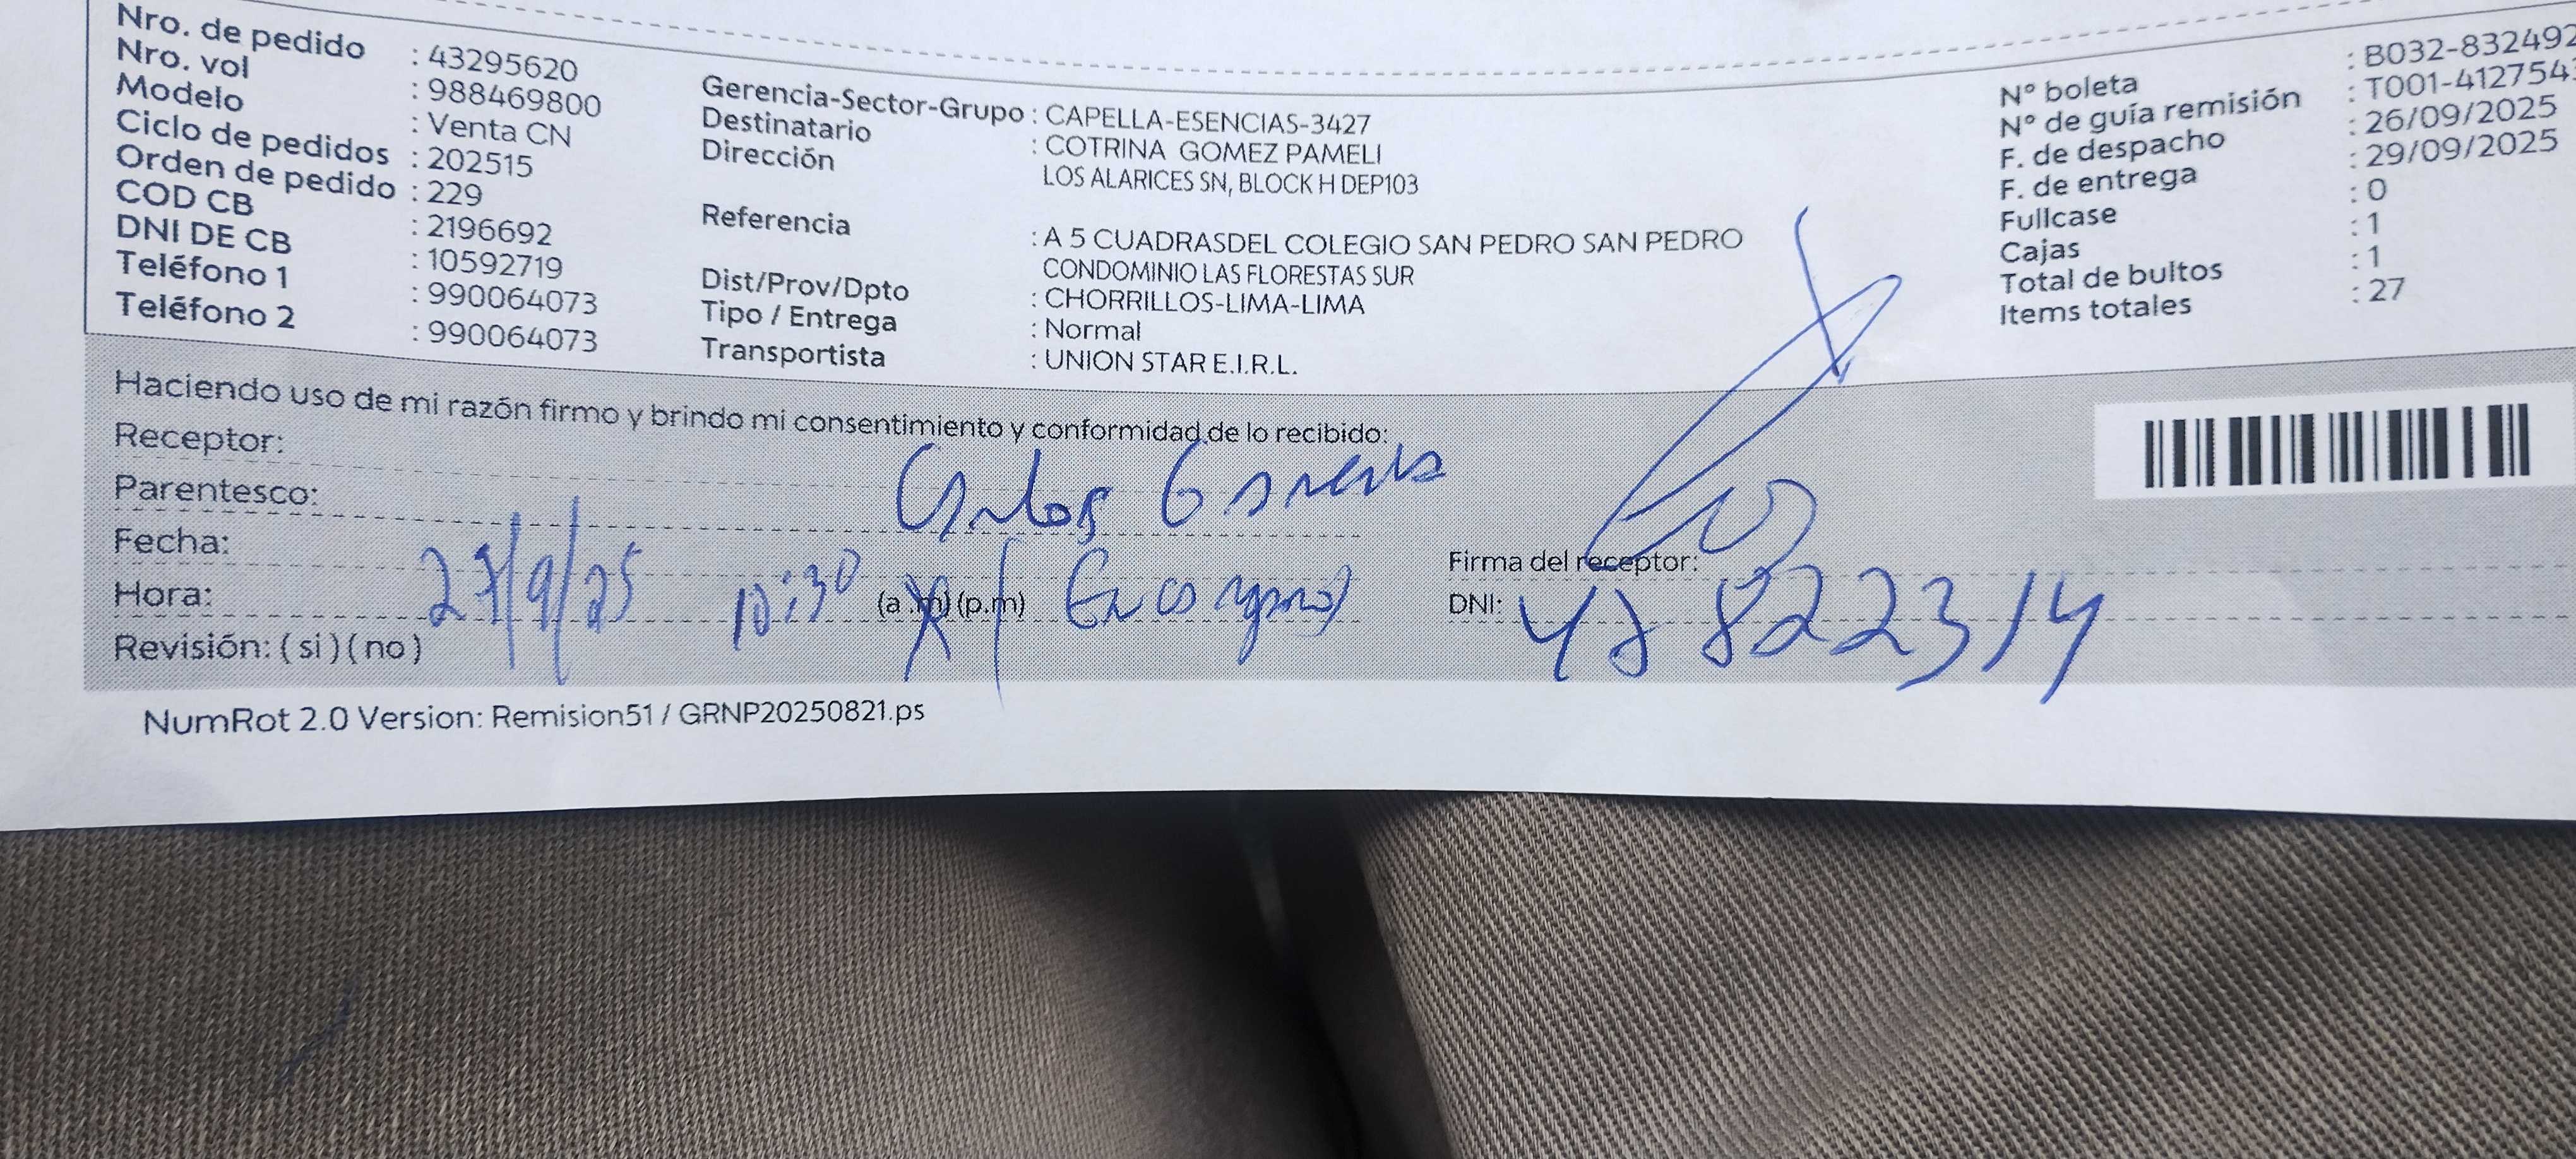 Nro. de pedido : 43295620
Nro. vol : 988469800
Modelo : Venta CN
Ciclo de pedidos : 202515
Orden de pedido : 229
COD CB : 2196692
DNI DE CB : 10592719
Teléfono 1 : 990064073
Teléfono 2 : 990064073
Gerencia-Sector-Grupo : CAPELLA-ESENCIAS-3427
Destinatario : COTRINA GOMEZ PAMELI
Dirección
LOS ALARICES SN, BLOCK H DEP103
Referencia : A 5 CUADRASDEL COLEGIO SAN PEDRO SAN PEDRO
CONDOMINIO LAS FLORESTAS SUR
Dist/Prov/Dpto : CHORRILLOS-LIMA-LIMA
Tipo / Entrega : Normal
Transportista : UNION STAR E.I.R.L.
N° boleta : B032-832492
N° de guía remisión : T001-412754
F. de despacho : 26/09/2025
F. de entrega : 29/09/2025
Fullcase : 0
Cajas : 1
Total de bultos : 1
Items totales : 27
Haciendo uso de mi razón firmo y brindo mi consentimiento y conformidad de lo recibido:
Receptor: Carlos
Parentesco:
Fecha: 27/9/25
Hora: 10:30 (a.m) (p.m)
Revisión: ( si ) ( no )
Firma del receptor:
DNI:
NumRot 2.0 Version: Remision51 / GRNP20250821.ps